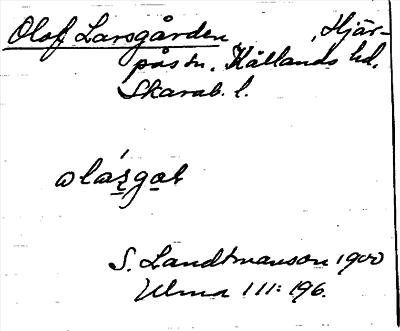 Olof Larsgården, Hjär-
pås sn. Kållands hd.
Skarab. l.
olárgat
S. Landtmanson 1900
Ulma 111:196.